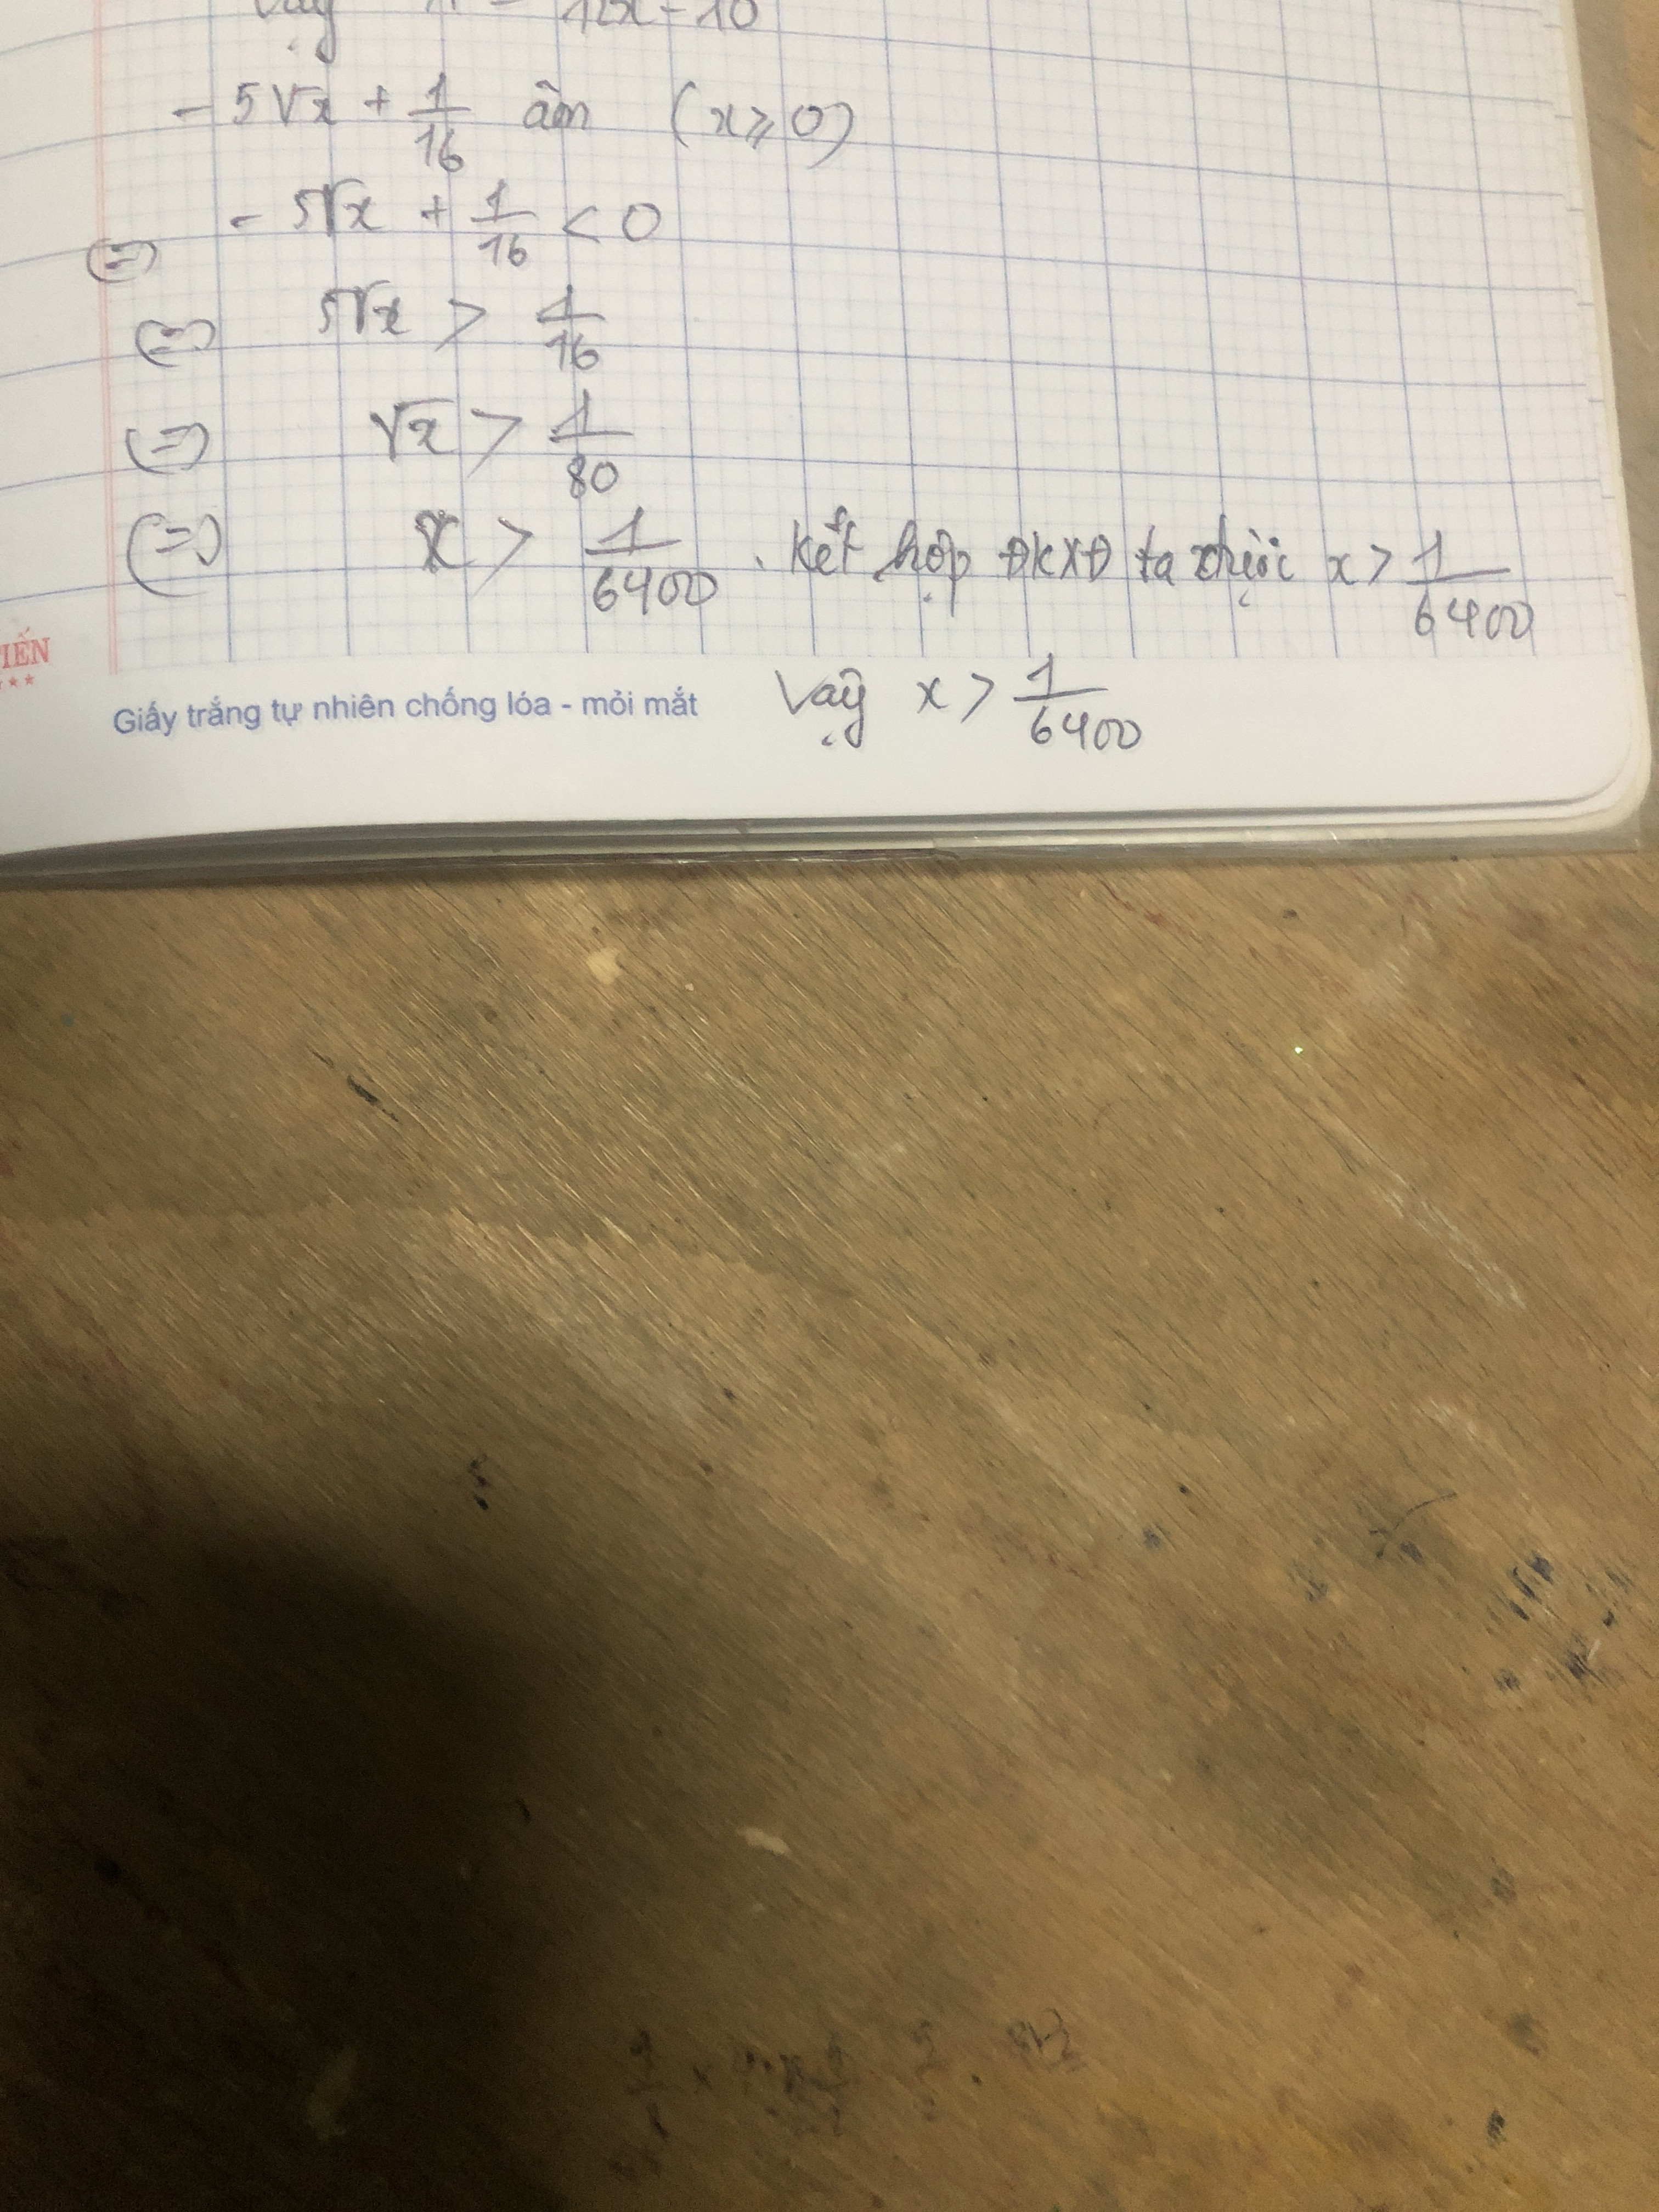 Vậy = 12x - 10
- 5√x + 1/16 âm (x ⩾ 0)
(=) - 5√x + 1/16 < 0
(=) 5√x > 1/16
(=) √x > 1/80
(=) x > 1/6400 . Kết hợp ĐKXĐ ta được x > 1/6400
IẾN
★★
Giấy trắng tự nhiên chống lóa - mỏi mắt
Vậy x > 1/6400